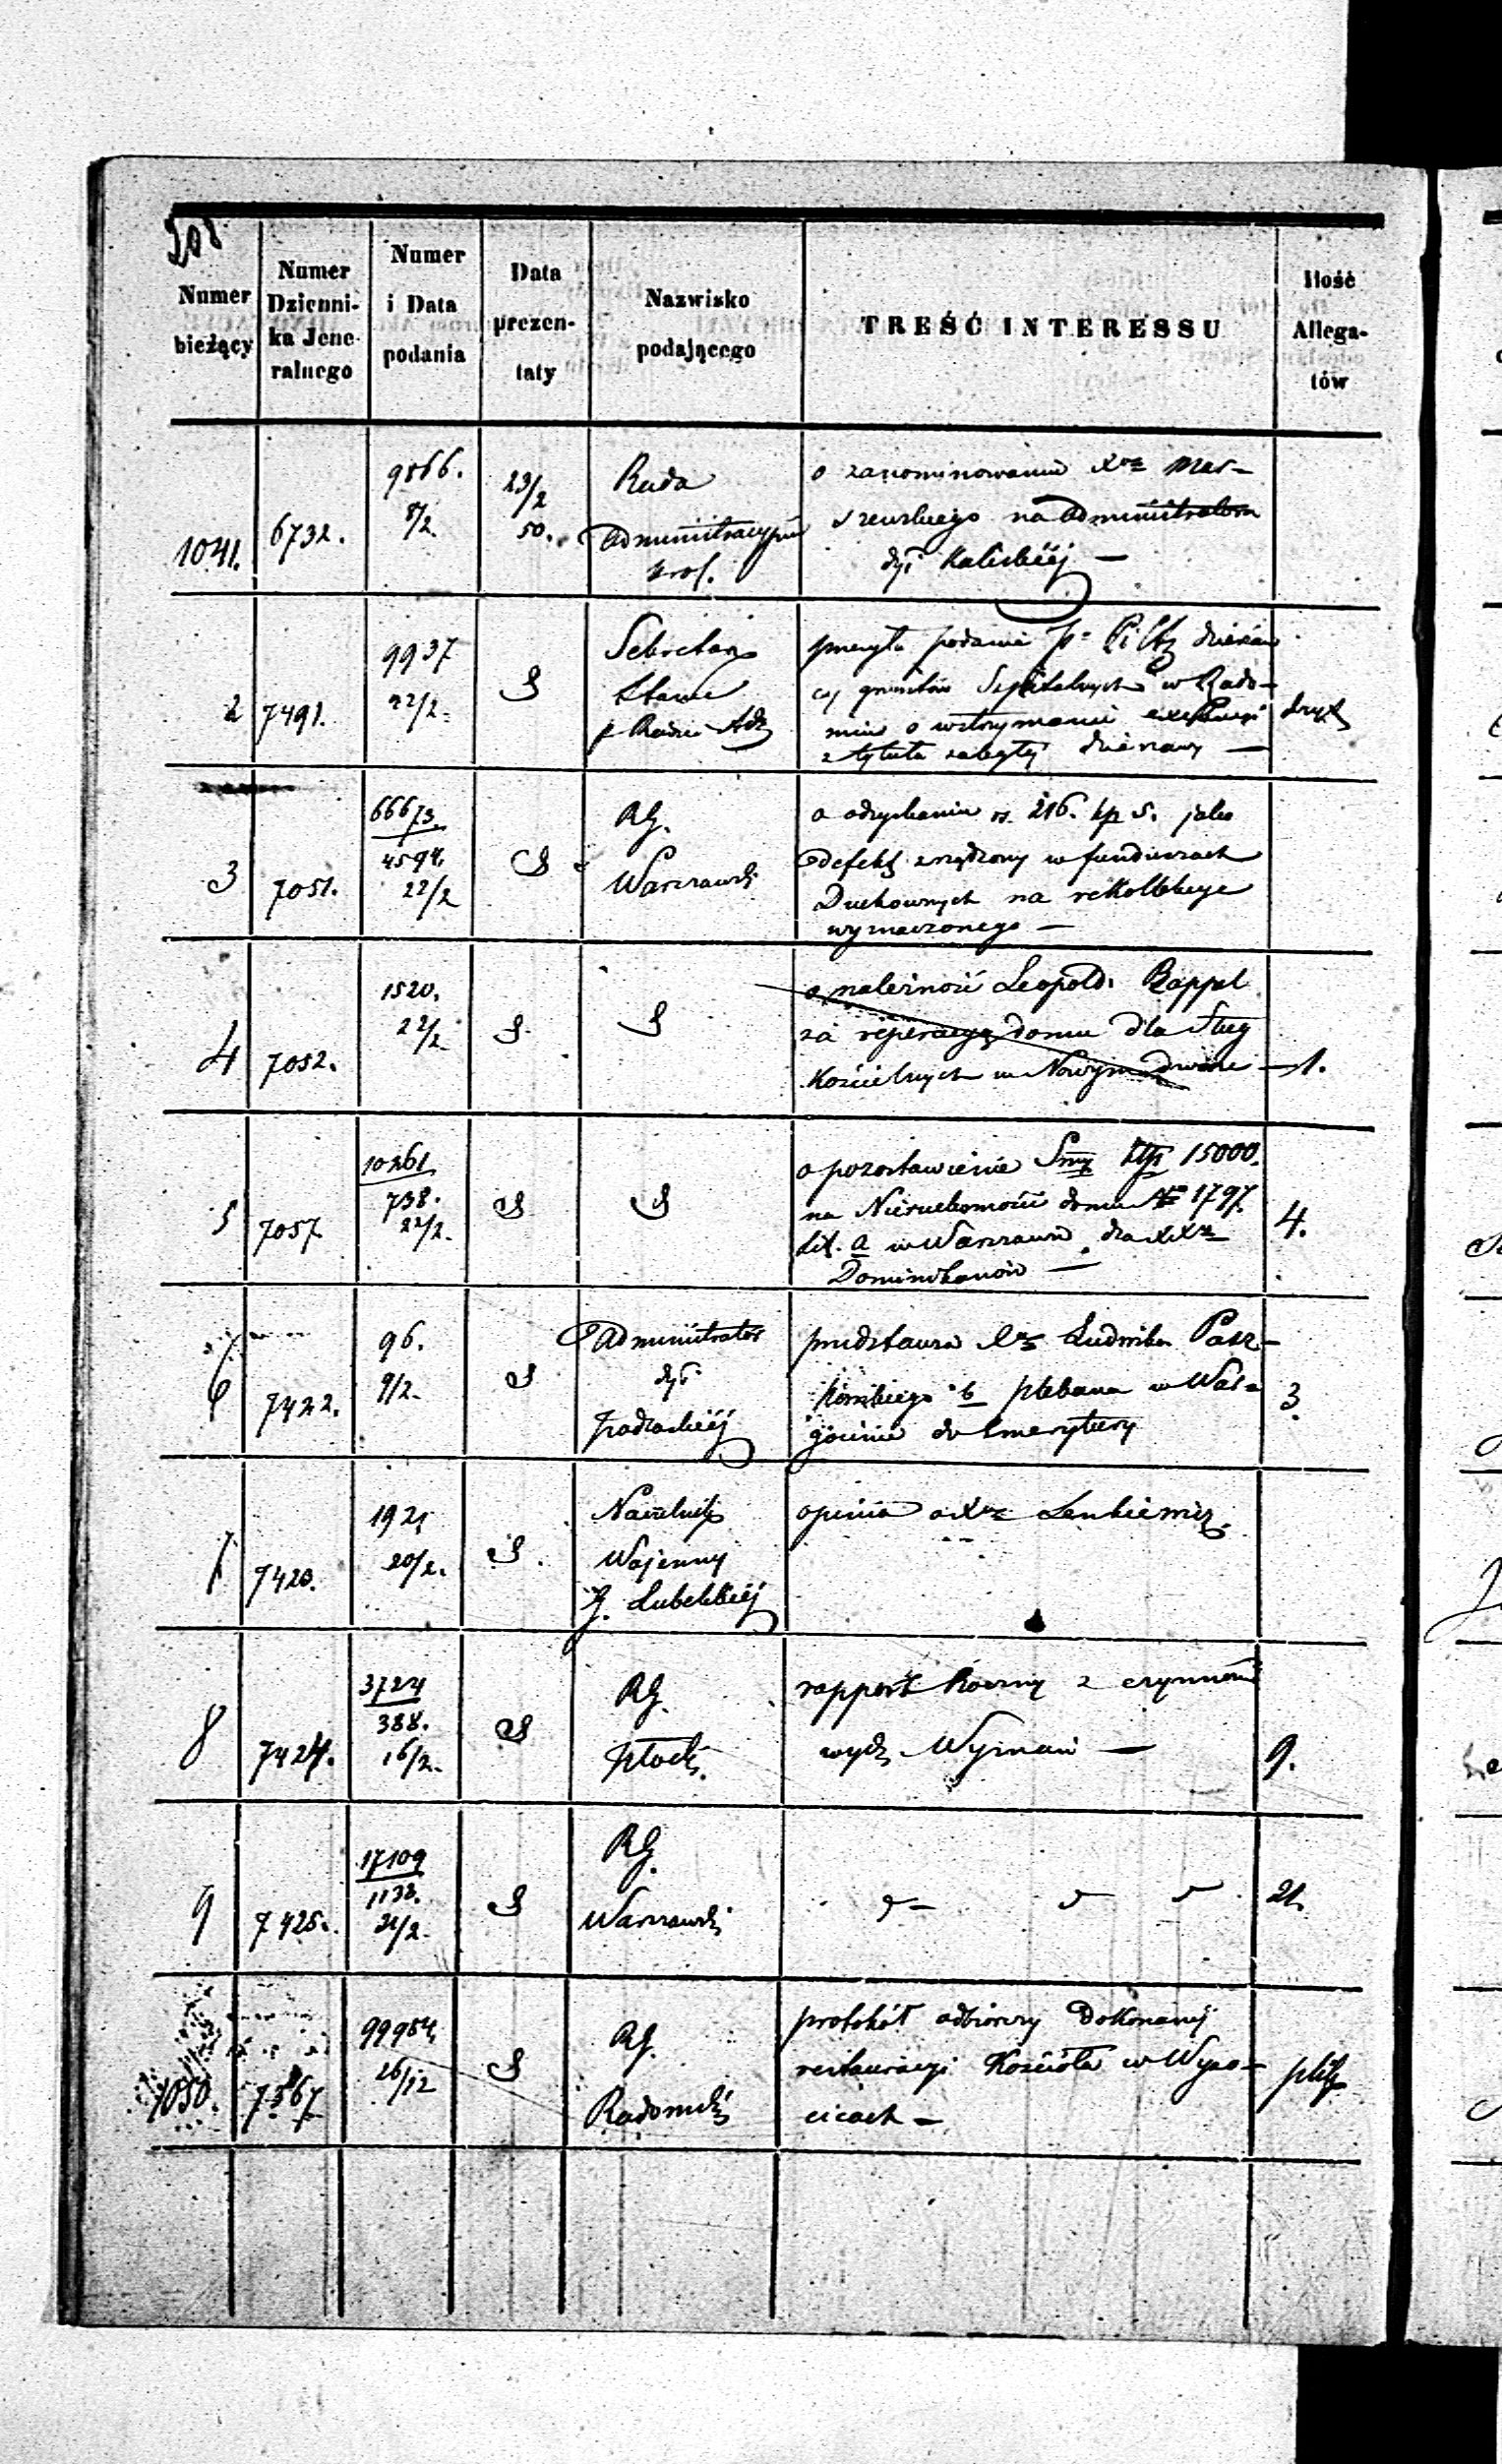 208
Numer bieżący
Numer Dzienni- ka Jene- ralnego
Numer i Data podania
Data prezen- taty
Nazwisko podającego
TREŚĆ INTERESSU
Ilość Allega- tów
1041.
6732.
9866.
8/2.
23/2
50.
Rada
Administracyjna
Krol.
o zanominowaniu Xa Mar-
szewskiego na Administratora
dyi Kaliskiéj —
2
7491.
9937
22/2
Sekretarz
Stanu
p Radzie Adz
o wstrzymanie
z tytułu zaległéj dzierżawy —
3
7051.
66673.
4594.
22/2
RG.
Warszawski
o odzyskaniu rs. 216. kp 5. jako
defekt zrządzony w funduszach
Duchownych na rekollekcye
wyznaczonego —
4
7052.
1520.
22/2
o należność Leopolda Rappel
za reperacyą domu dla Sług
Kościelnych w Nowym dworze —
1.
5
7057.
10261
738.
22/2.
o pozostawienie Smy 15000.
na Nieruchomości domu No 1797.
Lit. a w Warszawie dla XX
Dominikanów —
4.
6
7422.
96.
9/2.
Administrator
dyi
Podlaskiéj
przedstawia Xa Ludwika Pasz-
kowskiego b plebana w
do Emerytury
3.
7
7420.
1921
20/2.
Naczelnik
Wojenny
G. Lubelskiéj
opinia o Xa Lenkiewicz.
8
7424.
3724
388.
16/2.
RG.
Płocki.
rapport Roczny z czynności
wydz Wyznań —
9.
9
7425.
17109
1138.
21/2.
RG.
Warszawski
21.
1050.
7567
99954.
26/12
RG.
Radomski
protokół odbiorczy dokonanéj
restauracyi Kościoła w Wyso-
cicach —
plik